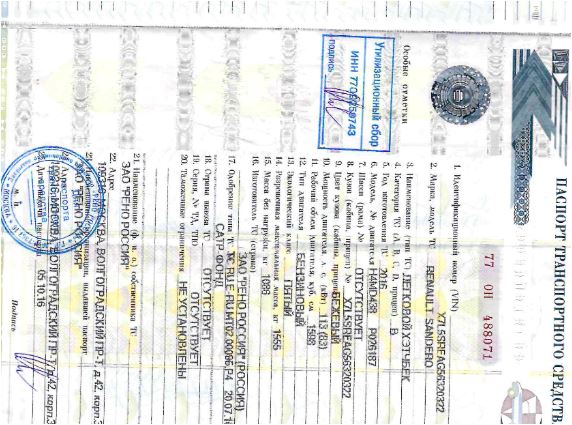 ПАСПОРТ ТРАНСПОРТНОГО СРЕДСТВ
77 ОН 488071
1. Идентификационный номер (VIN) X7L5SREAG56320322
2. Марка, модель ТС RENAULT SANDERO
3. Наименование (тип ТС) ЛЕГКОВОЙ ХЭТЧБЕК
4. Категория ТС (A, B, C, D, прицеп) B
5. Год изготовления ТС 2016
6. Модель, № двигателя H4MD438 P026187
7. Шасси (рама) № ОТСУТСТВУЕТ
8. Кузов (кабина, прицеп) № X7L5SREAG56320322
9. Цвет кузова (кабины, прицепа) БЕЖЕВЫЙ
10. Мощность двигателя, л. с. (кВт) 113 (83)
11. Рабочий объем двигателя, куб. см 1598
12. Тип двигателя БЕНЗИНОВЫЙ
13. Экологический класс ПЯТЫЙ
14. Разрешенная максимальная масса, кг 1555
15. Масса без нагрузки, кг 1086
16. Изготовитель ТС (страна)
ЗАО "РЕНО РОССИЯ" (РОССИЯ)
17. Одобрение типа ТС № 20.07.16
САТР-ФОНД
18. Страна вывоза ТС ОТСУТСТВУЕТ
19. Серия, № ТД, ТПО ОТСУТСТВУЕТ
20. Таможенные ограничения НЕ УСТАНОВЛЕНЫ
21. Наименование (ф. и. о.) собственника ТС
ЗАО "РЕНО РОССИЯ"
22. Адрес
109316, МОСКВА, ВОЛГОГРАДСКИЙ ПР-Т, д.42, корп.3
23. Наименование организации, выдавшей паспорт
ЗАО "РЕНО РОССИЯ"
24. Адрес
МОСКВА, ВОЛГОГРАДСКИЙ ПР-Т, д.42, корп.3
25. Дата выдачи паспорта 05.10.16
М. П.
Подпись
Особые отметки
Утилизационный сбор
ИНН 7709259743
подпись